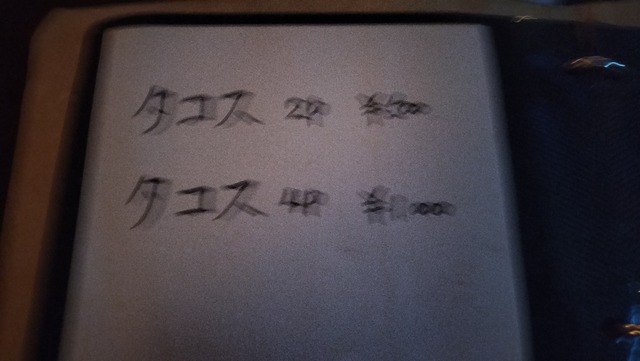 タコス 2P ¥500
タコス 4P ¥1000